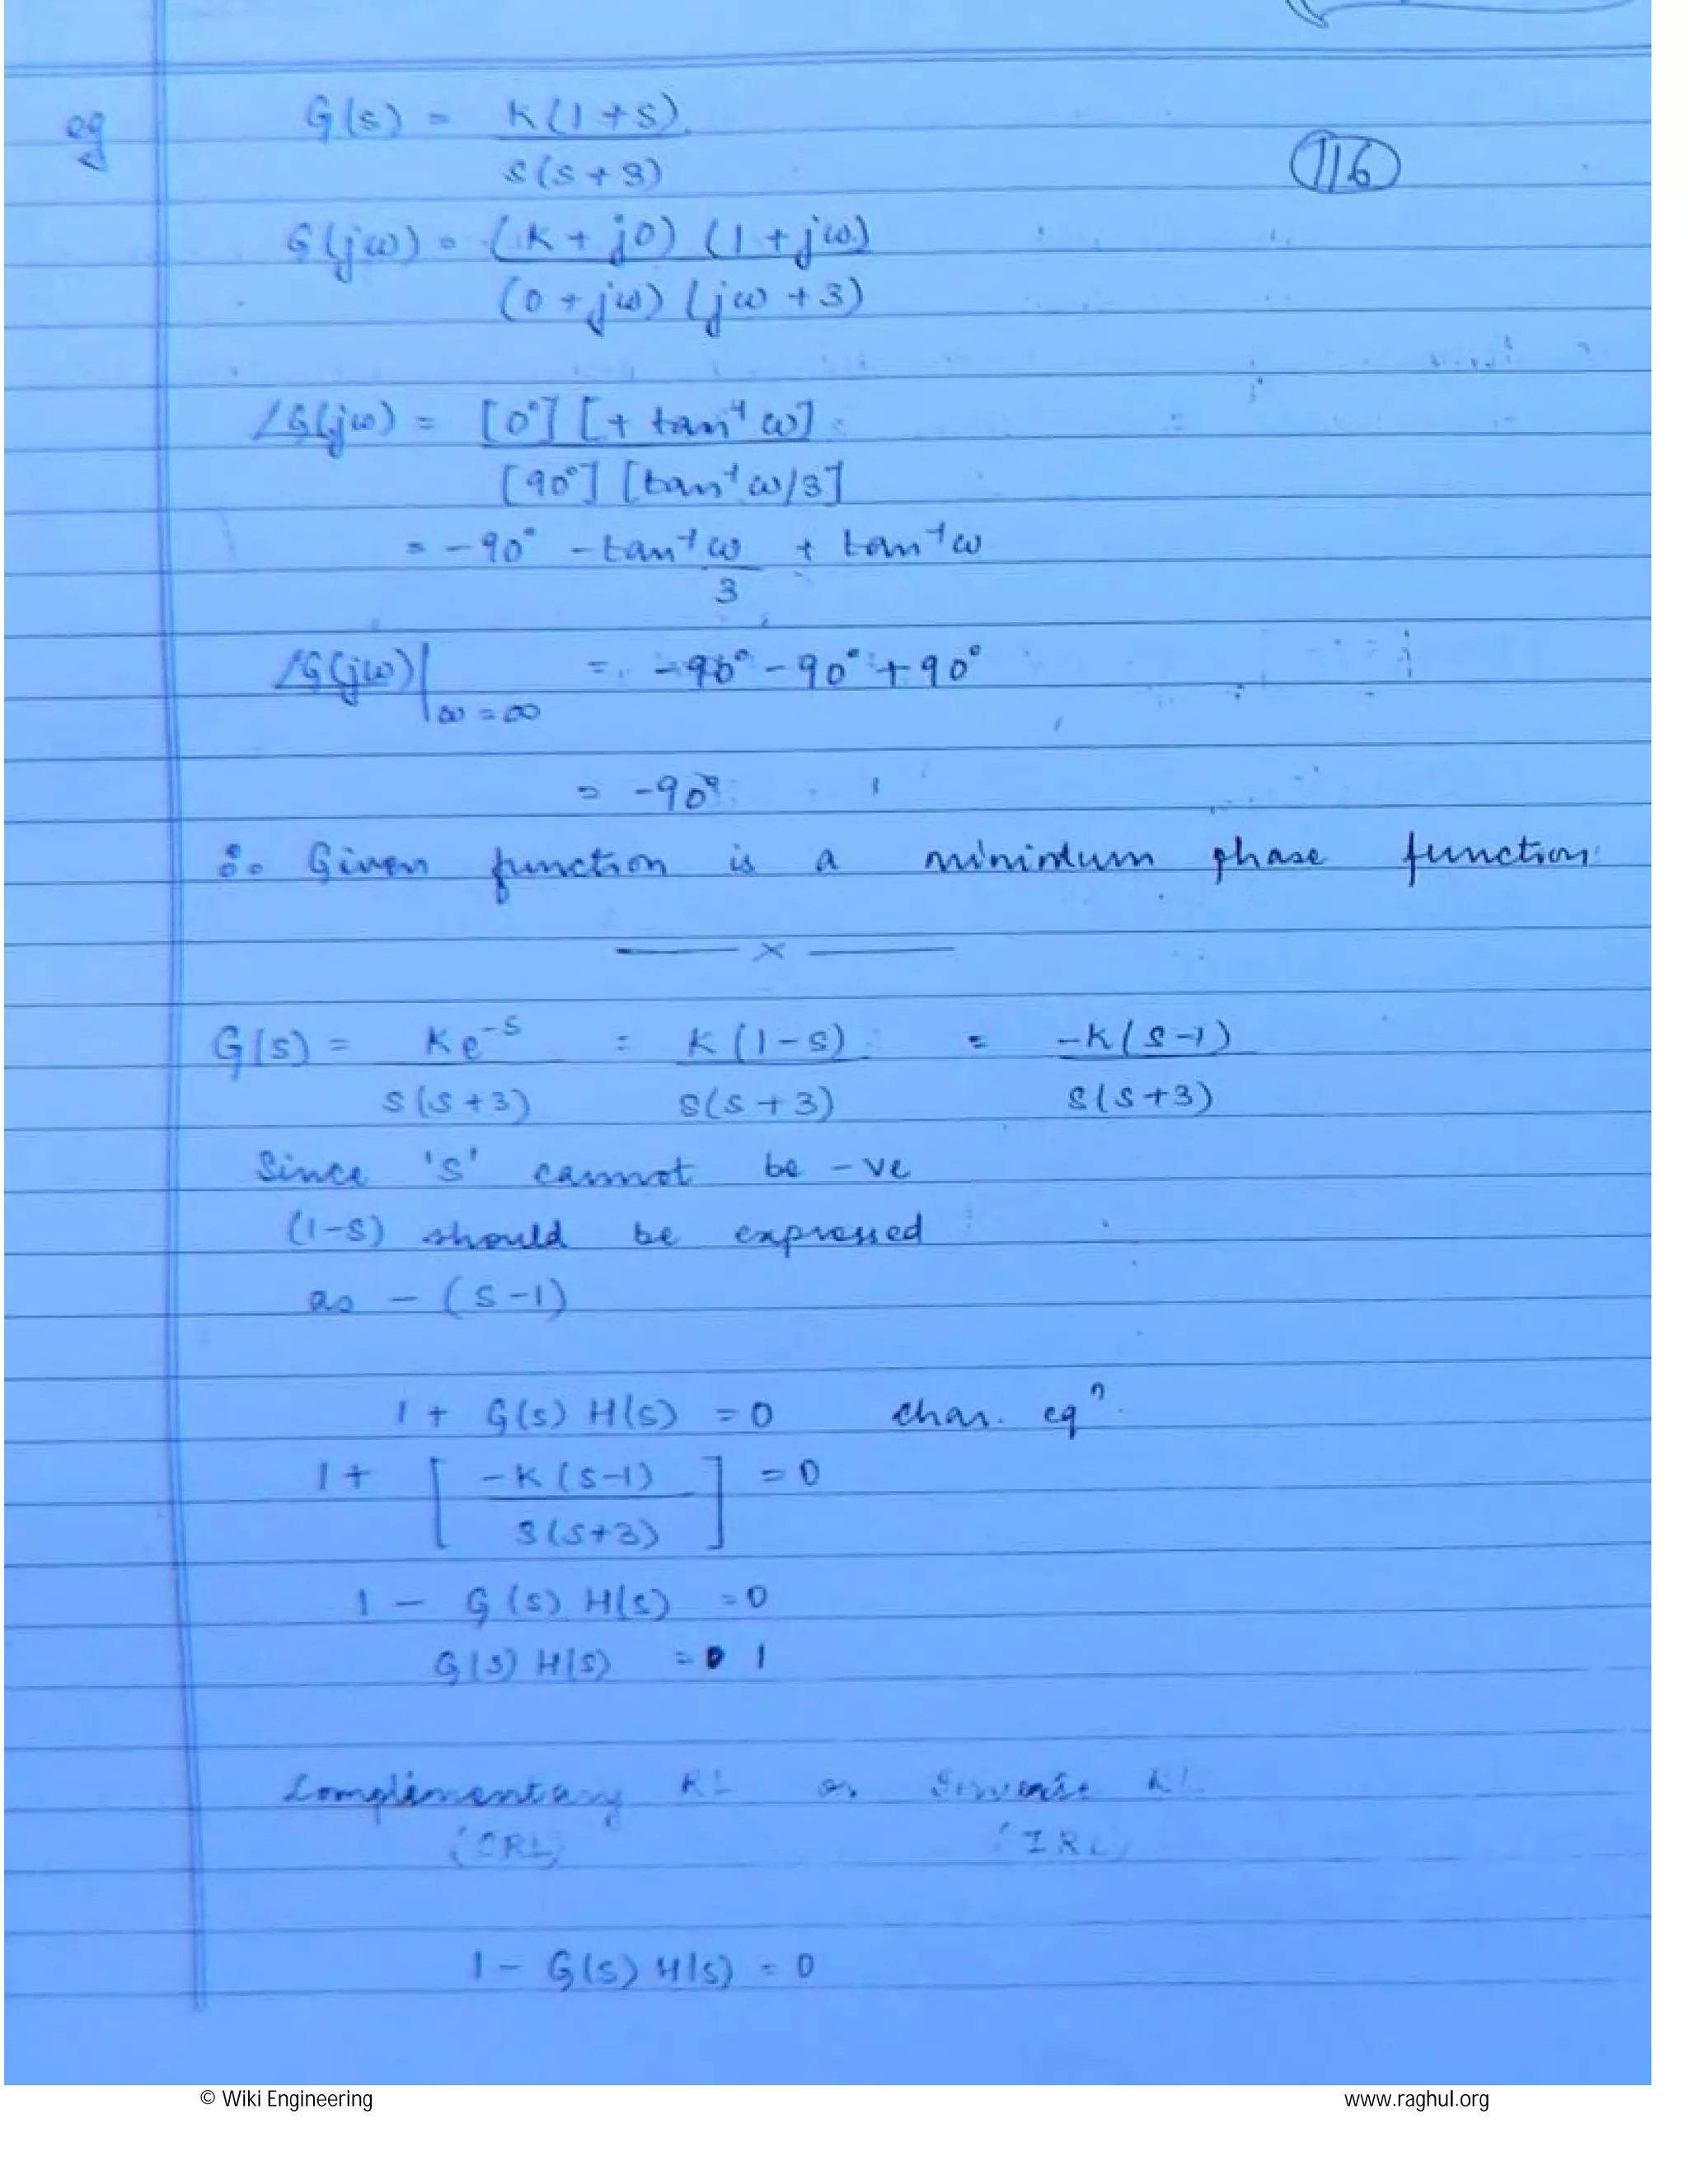 eg G(s) = K(1+s)
s(s+3)
116
G(jω) = (K + j0) (1 + jω)
(0 + jω) (jω + 3)
∠G(jω) = [0°] [+ tan⁻¹ ω]
[90°] [tan⁻¹ ω/3]
= -90° - tan⁻¹ ω + tan⁻¹ ω
3
∠G(jω)| = -90° - 90° + 90°
ω = ∞
= -90°
∴ Given function is a minimum phase function
—— x ——
G(s) = Ke⁻ˢ = K(1-s) = -K(s-1)
s(s+3) s(s+3) s(s+3)
Since 's' cannot be -ve
(1-s) should be expressed
as - (s-1)
1 + G(s) H(s) = 0 char. eqⁿ.
1 + [ -K(s-1) ] = 0
s(s+3)
1 - G(s) H(s) = 0
G(s) H(s) = 1
Complimentary RL or Inverse RL
(CRL) (IRL)
1 - G(s) H(s) = 0
© Wiki Engineering www.raghul.org